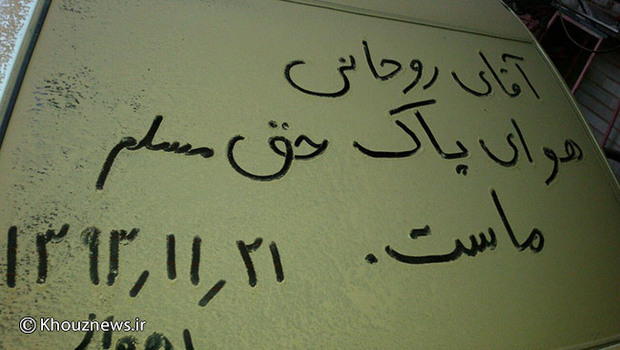 آقای روحانی
هوای پاک حق مسلم
ماست.
۱۳۹۳/۱۱/۲۱
اهواز
© Khouznews.ir